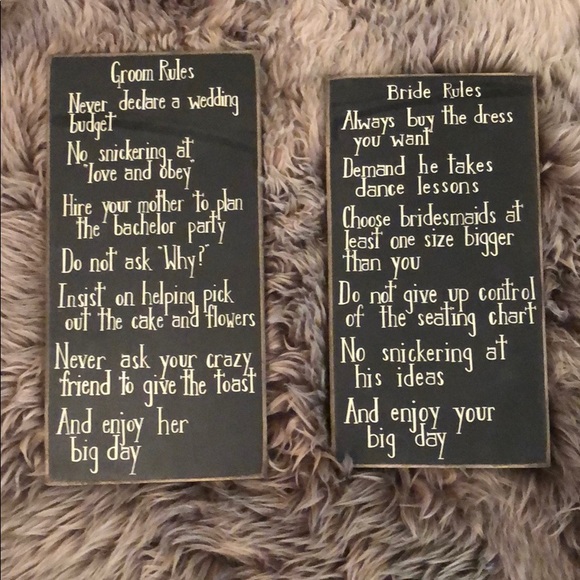 Groom Rules
Never declare a wedding
budget
No snickering at
"love and obey"
Hire your mother to plan
the bachelor party
Do not ask "Why?"
Insist on helping pick
out the cake and flowers
Never ask your crazy
friend to give the toast
And enjoy her
big day
Bride Rules
Always buy the dress
you want
Demand he takes
dance lessons
Choose bridesmaids at
least one size bigger
than you
Do not give up control
of the seating chart
No snickering at
his ideas
And enjoy your
big day